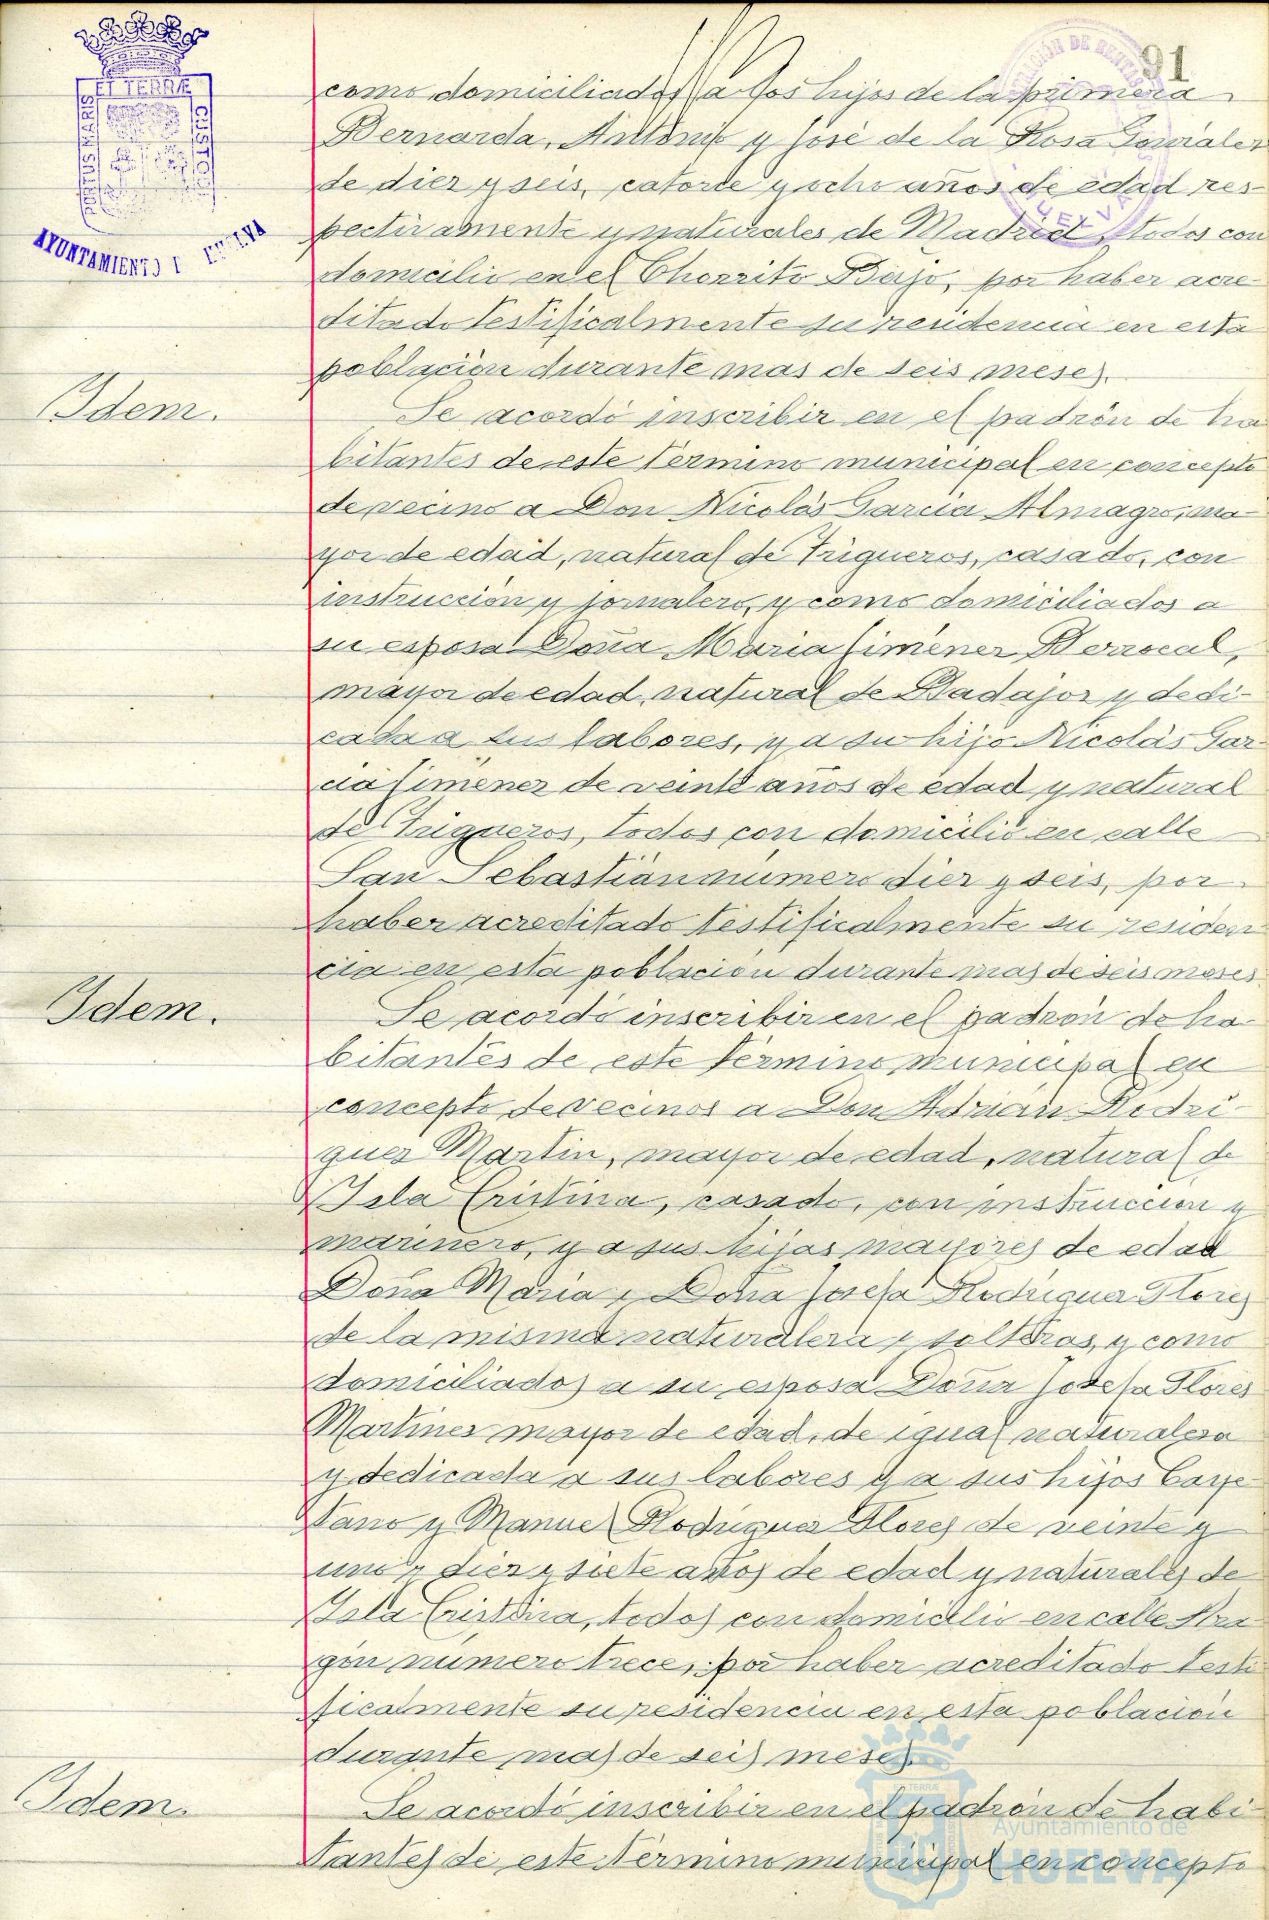 91
ET TERRÆ
PORTUS MARIS
CUSTODIA
AYUNTAMIENTO HUELVA
HUELVA
como domiciliados a los hijos de la primera
Bernarda, Antonio y José de la Rosa Gonzalez
de diez y seis, catorce y ocho años de edad res-
pectivamente y naturales de Madrid, todos con
domicilio en el Chorrito Bajo, por haber acre-
ditado testificalmente su residencia en esta
población durante mas de seis meses.
Idem.
Se acordó inscribir en el padrón de ha
bitantes de este término municipal en concepto
de vecino a Don Nicolás Garcia Almagro, ma-
yor de edad, natural de Trigueros, casado, con
instrucción y jornalero, y como domiciliados a
su esposa Doña Maria Jiménez Berrocal,
mayor de edad, natural de Badajoz y dedi-
cada a sus labores, y a su hijo Nicolás Gar-
cia Jiménez de veinte años de edad y natural
de Trigueros, todos con domicilio en calle
San Sebastián número diez y seis, por
haber acreditado testificalmente su residen
cia en esta población durante mas de seis meses
Idem.
Se acordó inscribir en el padrón de ha-
bitantes de este término municipal en
concepto de vecinos a Don Adrián Rodri-
guez Martin, mayor de edad, natural de
Isla Cristina, casado, con instrucción y
marinero, y a sus hijas mayores de edad
Doña Maria y Doña Josefa Rodríguez Flores
de la misma naturaleza y solteras, y como
domiciliados a su esposa Doña Josefa Flores
Martinez mayor de edad, de igual naturaleza
y dedicada a sus labores y a sus hijos Caye
tano y Manuel Rodríguez Flores de veinte y
uno y diez y siete años de edad y naturales de
Isla Cristina, todos con domicilio en calle Ara
gón número trece, por haber acreditado testi
ficalmente su residencia en esta población
durante mas de seis meses.
Idem.
Se acordó inscribir en el padrón de habi-
tantes de este término municipal en concepto
Ayuntamiento de
HUELVA